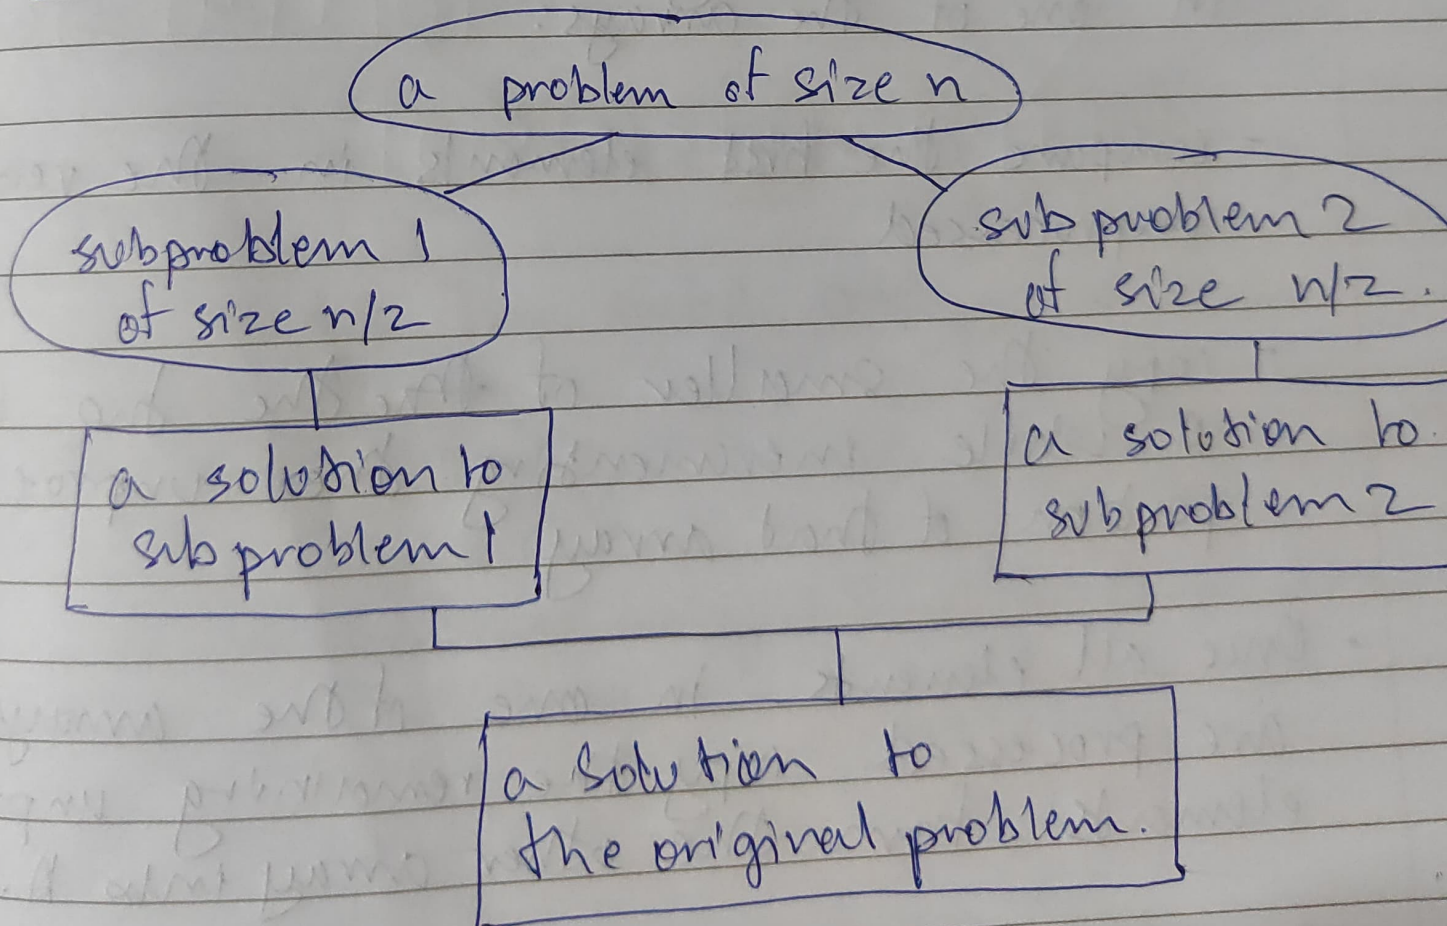 a problem of size n
subproblem 1
of size n/2
sub problem 2
of size n/2.
a solution to
sub problem 1
a solution to
subproblem 2
a solution to
the original problem.